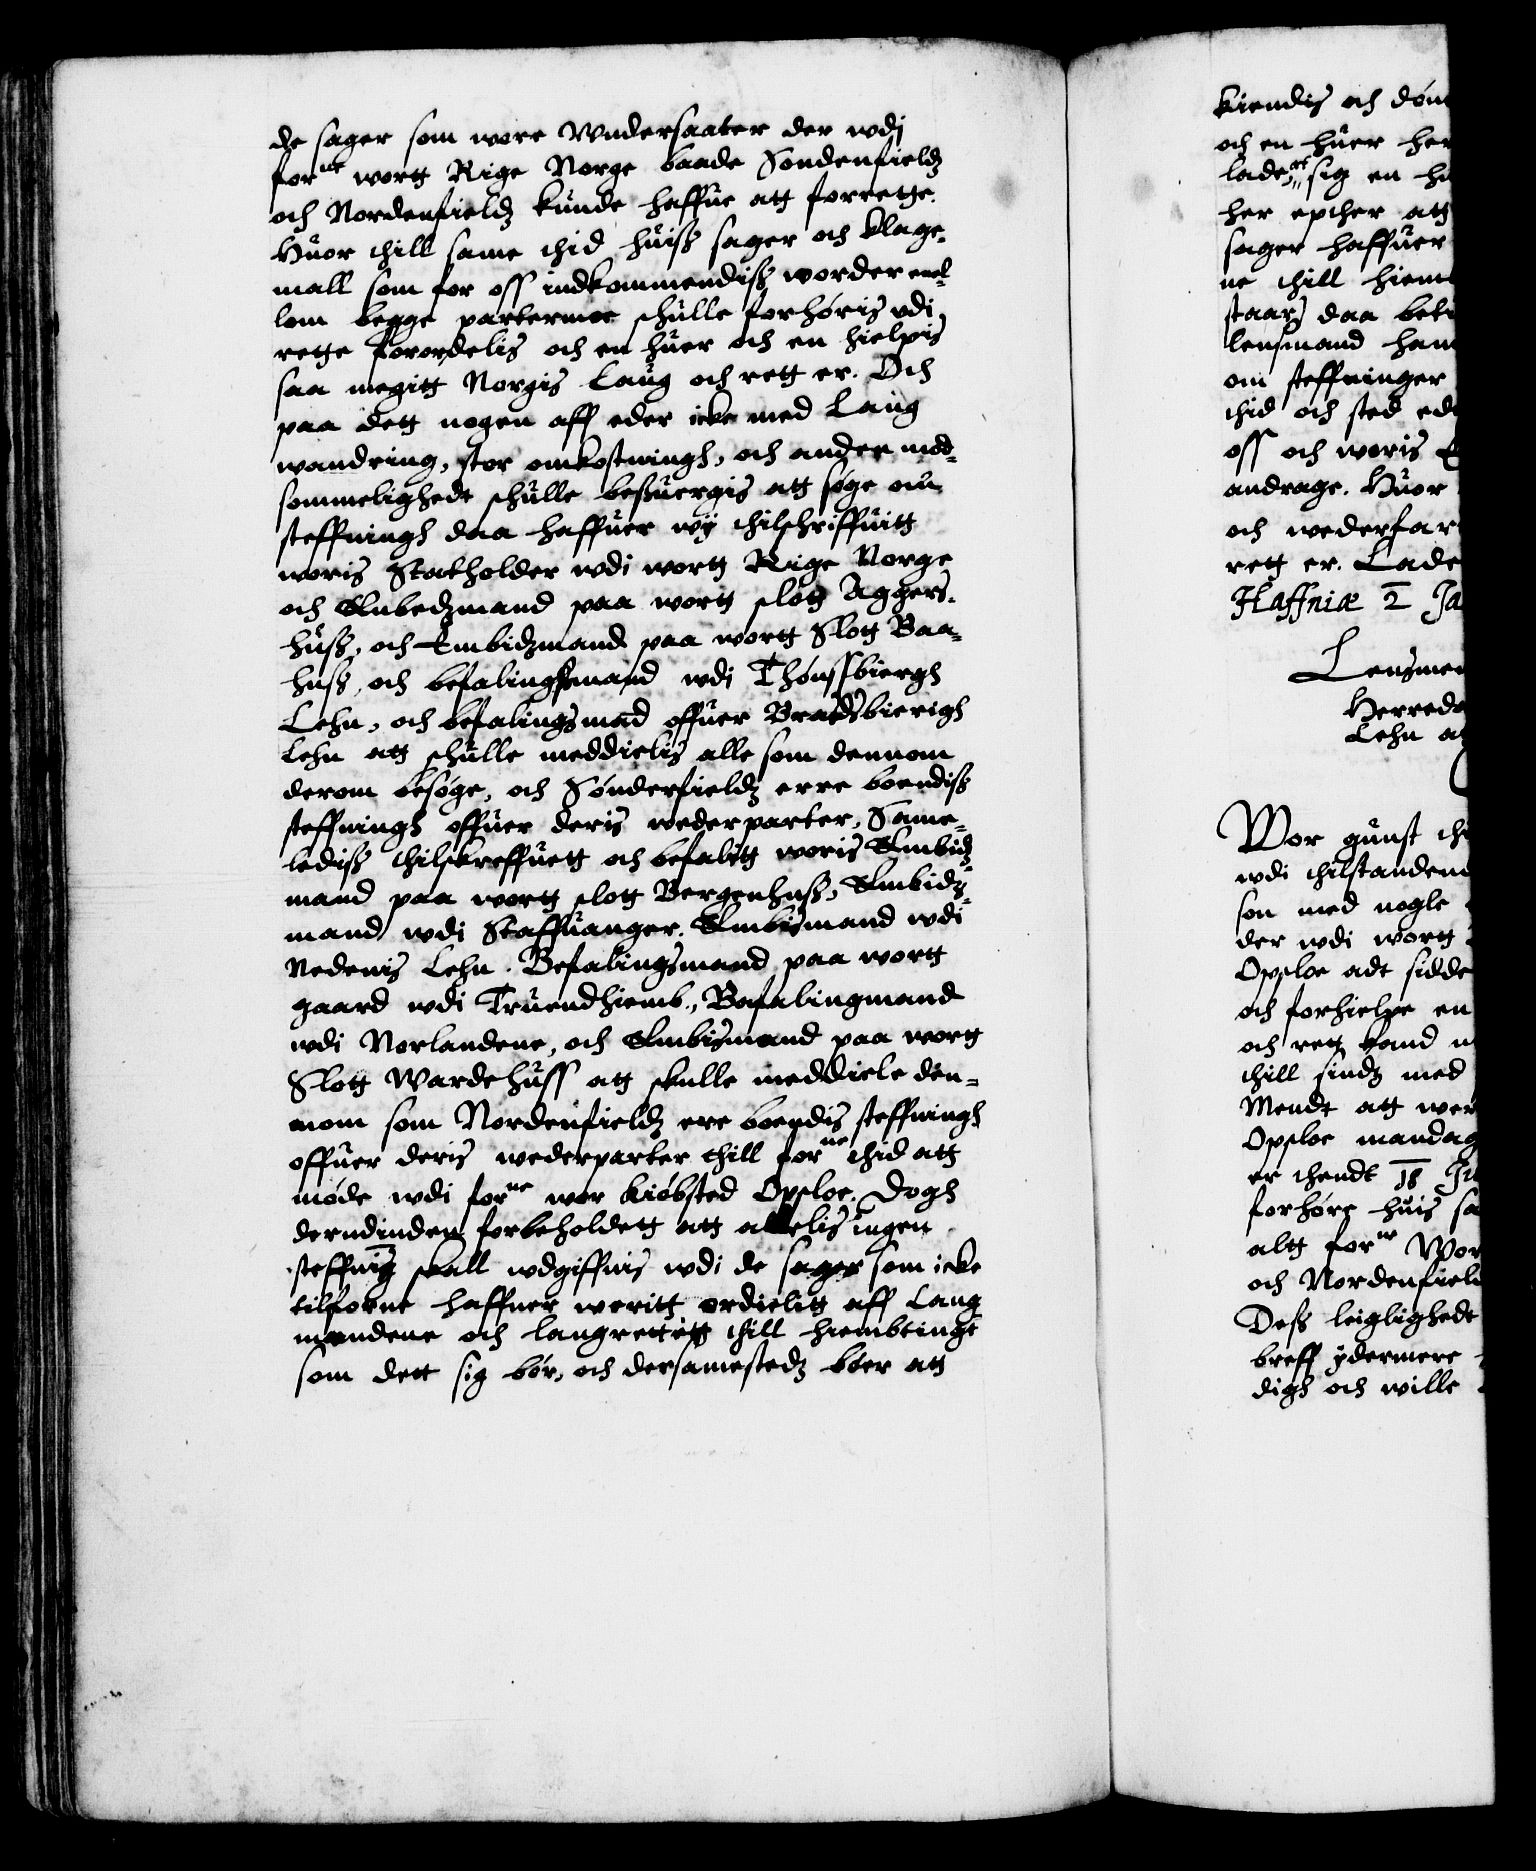 de sager som wore Wndersaater der wdj
forne wortt Rige Norge baade Søndenfieldz
och Nordenfieldz kunde haffue att forrette.
Huor thill same thid huiss sager och klage-
mall som for oss indkommendiss worder mel-
lom begge parterne schulle forhøris vdi
rette forordelis och en huer och en hielpis
saa megitt Norgis Laug och rett er. Och
paa dett nogen aff eder icke med Lang
wandring, stor omkostningh, och anden mød-
sommelighedt schulle besuergis att søge om
steffningh daa haffuer wÿ thilschriffuitt
woris Statholder wdi wortt Rige Norge
och Embedzmand paa wortt slott Aggers-
huss, och Embidzmand paa wortt Slott Baa-
huss, och befalingsmand wdi Thønssbiergh
Lehn, och befalingsmad offuer Bradsbierigh
Lehn att schulle meddielis alle som dennom
derom besøge, och Sønderfieldz erre boendiss
steffningh offuer deris wederparter, Same-
lediss thilskreffuett och befalitt woris Embidz-
mand paa wortt slott Bergenhuss, Embidz-
mand wdi Staffuanger. Embismand wdi
Nedenis Lehn. Befalingsmand paa wortt
gaard wdi Truendhiemb., Befalingmand
wdi Norlandene, och Embismand paa wortt
Slott Wardehuss att skulle meddiele den-
nom som Nordenfieldz ere boendis steffningh
offuer deris wederparter thill forne thid att
møde wdi forne wor kiøbsted Opsloe. Dogh
derudinden forbeholdett att aldelis ingen
steffning skall wdgiffuis wdi de sager som icke
tilforne haffuer weritt ordielitt aff Laug
mendene och laugrettitt thill hiembtingt
som dett sig bør, och dersamestedz bøer att
kiendis och døm
och en huer her
lade sig en hu
her epther att
sager haffuer
ne thill hiem
staar) daa bet
lensmand ham
om steffninger
thid och sted ed
oss och woris
andrage. Huor
och wederfar
rett er. Lade
Haffniæ 2 Ja
Lensmen
Herreda
Lehn at
Wor gunst th
wdi thilstanden
son med nogle
der wdi wortt
Opsloe adt sidde
och forhielpe en
och rett kand
thill sindz med
Mendt att wer
Opsloe mandag
er thendt 18 Ju
forhøre huis sa
altt forne Wor
och Nordenfiel
Dess leiglighedt
breff ÿdermere
digh och wille